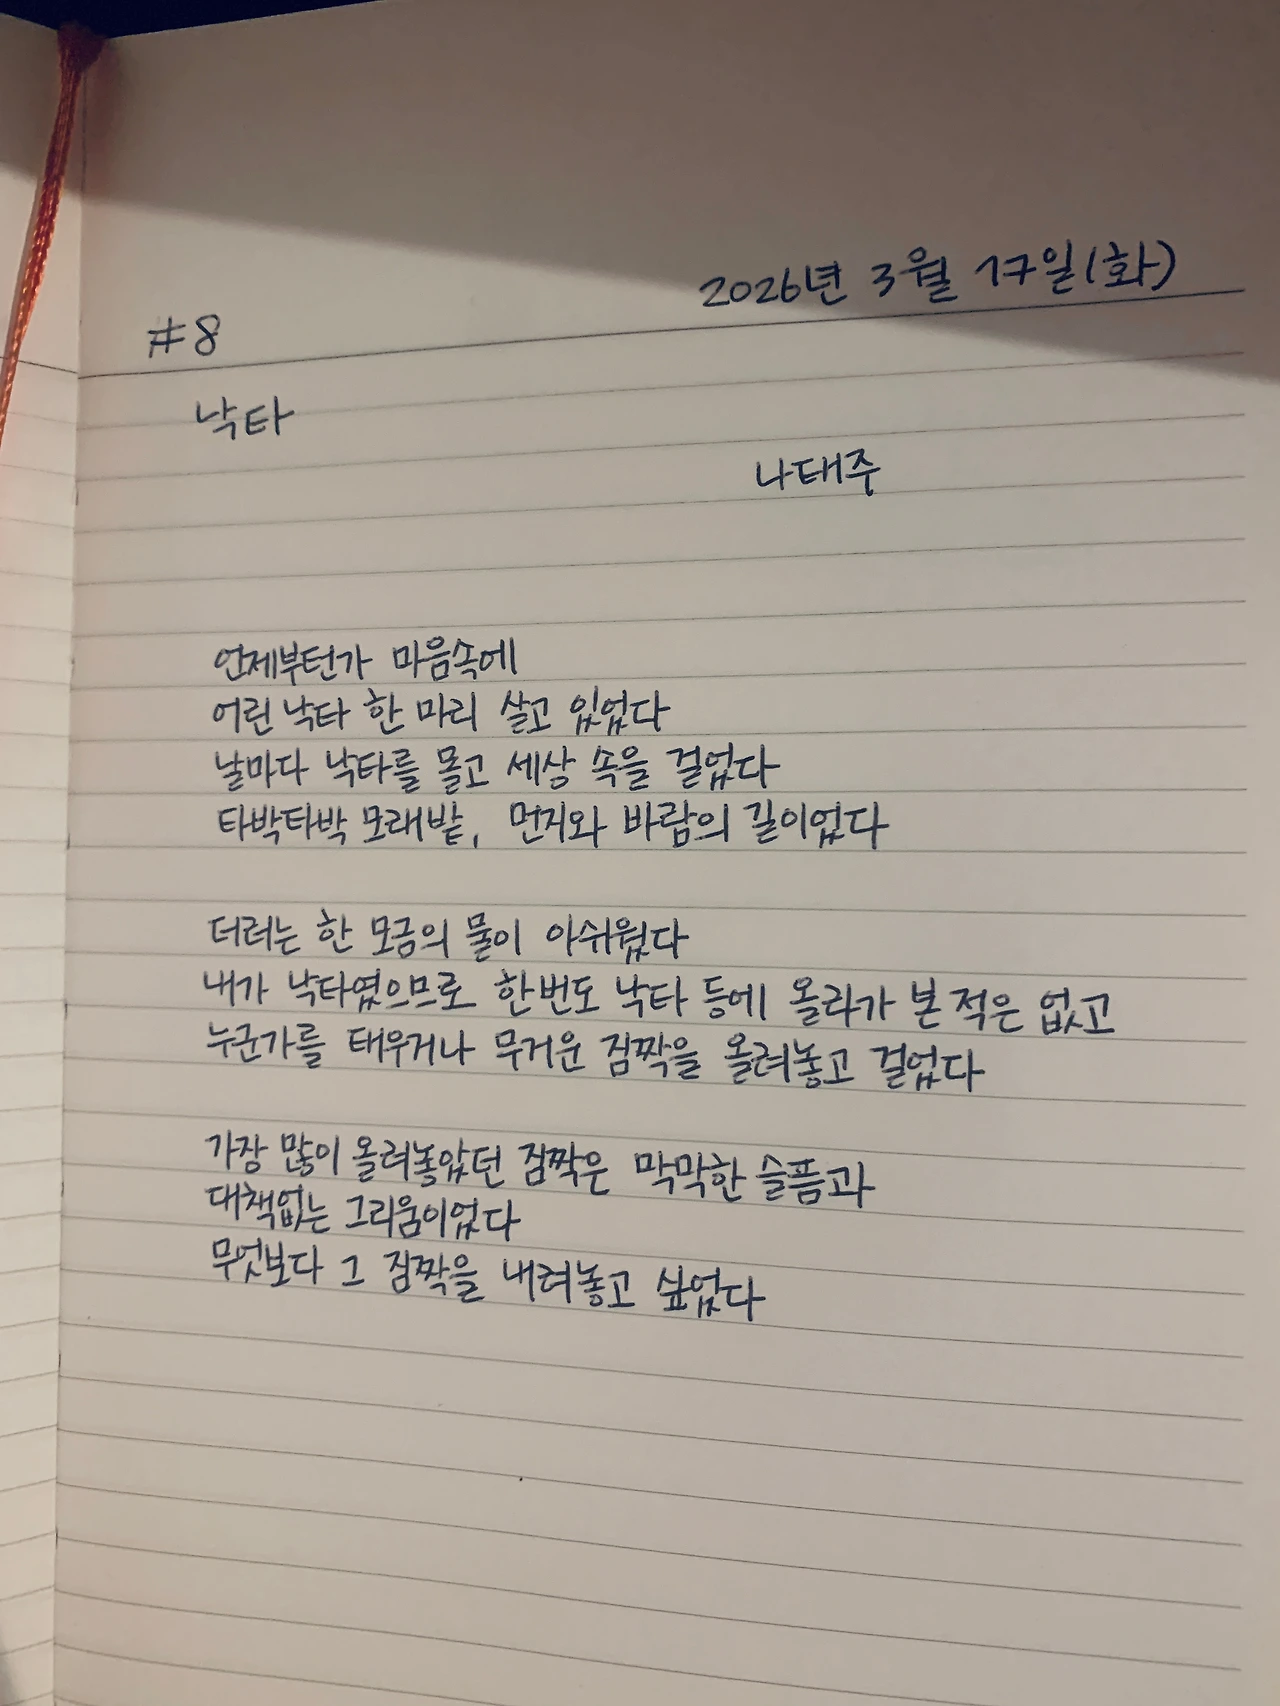 2026년 3월 17일(화)
#8
낙타
나태주
언제부턴가 마음속에
어린 낙타 한 마리 살고 있었다
날마다 낙타를 몰고 세상 속을 걸었다
타박타박 모래밭, 먼지와 바람의 길이었다
더러는 한 모금의 물이 아쉬웠다
내가 낙타였으므로 한번도 낙타 등에 올라가 본 적은 없고
누군가를 태우거나 무거운 짐짝을 올려놓고 걸었다
가장 많이 올려놓았던 짐짝은 막막한 슬픔과
대책없는 그리움이었다
무엇보다 그 짐짝을 내려놓고 싶었다